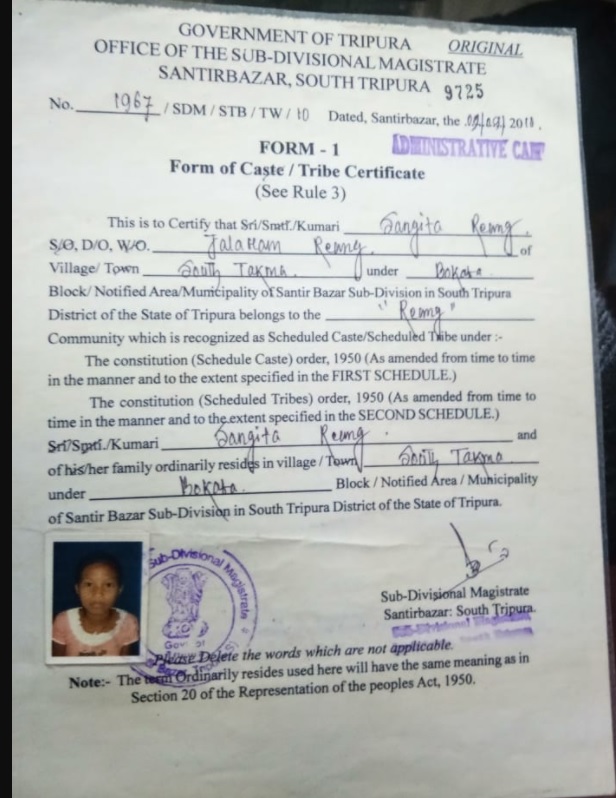 GOVERNMENT OF TRIPURA ORIGINAL
OFFICE OF THE SUB-DIVISIONAL MAGISTRATE
SANTIRBAZAR, SOUTH TRIPURA 9725
No. 1967 / SDM / STB / TW / 10 Dated, Santirbazar, the 2010.
ADMINISTRATIVE CAMP
FORM - 1
Form of Caste / Tribe Certificate
(See Rule 3)
This is to Certify that Sri/Smti./Kumari Sangita Reang.
S/O, D/O, W/O. Jalaram Reang. of
Village/ Town South Takma. under Bokafa
Block/ Notified Area/Municipality of Santir Bazar Sub-Division in South Tripura
District of the State of Tripura belongs to the "Reang"
Community which is recognized as Scheduled Caste/Scheduled Tribe under :-
The constitution (Schedule Caste) order, 1950 (As amended from time to time
in the manner and to the extent specified in the FIRST SCHEDULE.)
The constitution (Scheduled Tribes) order, 1950 (As amended from time to
time in the manner and to the extent specified in the SECOND SCHEDULE.)
Sri/Smti./Kumari Sangita Reang. and
of his/her family ordinarily resides in village / Town South Takma
under Bokafa. Block / Notified Area / Municipality
of Santir Bazar Sub-Division in South Tripura District of the State of Tripura.
Sub-Divisional Magistrate
Sub-Divisional Magistrate
Santirbazar: South Tripura.
Sub-Divisional Magistrate
Please Delete the words which are not applicable.
Note:- The term Ordinarily resides used here will have the same meaning as in
Section 20 of the Representation of the peoples Act, 1950.